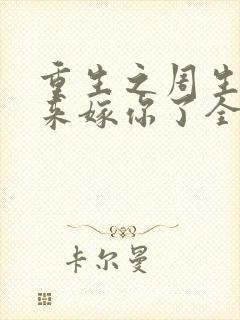 重生之周生
来嫁你了全
卡尔曼